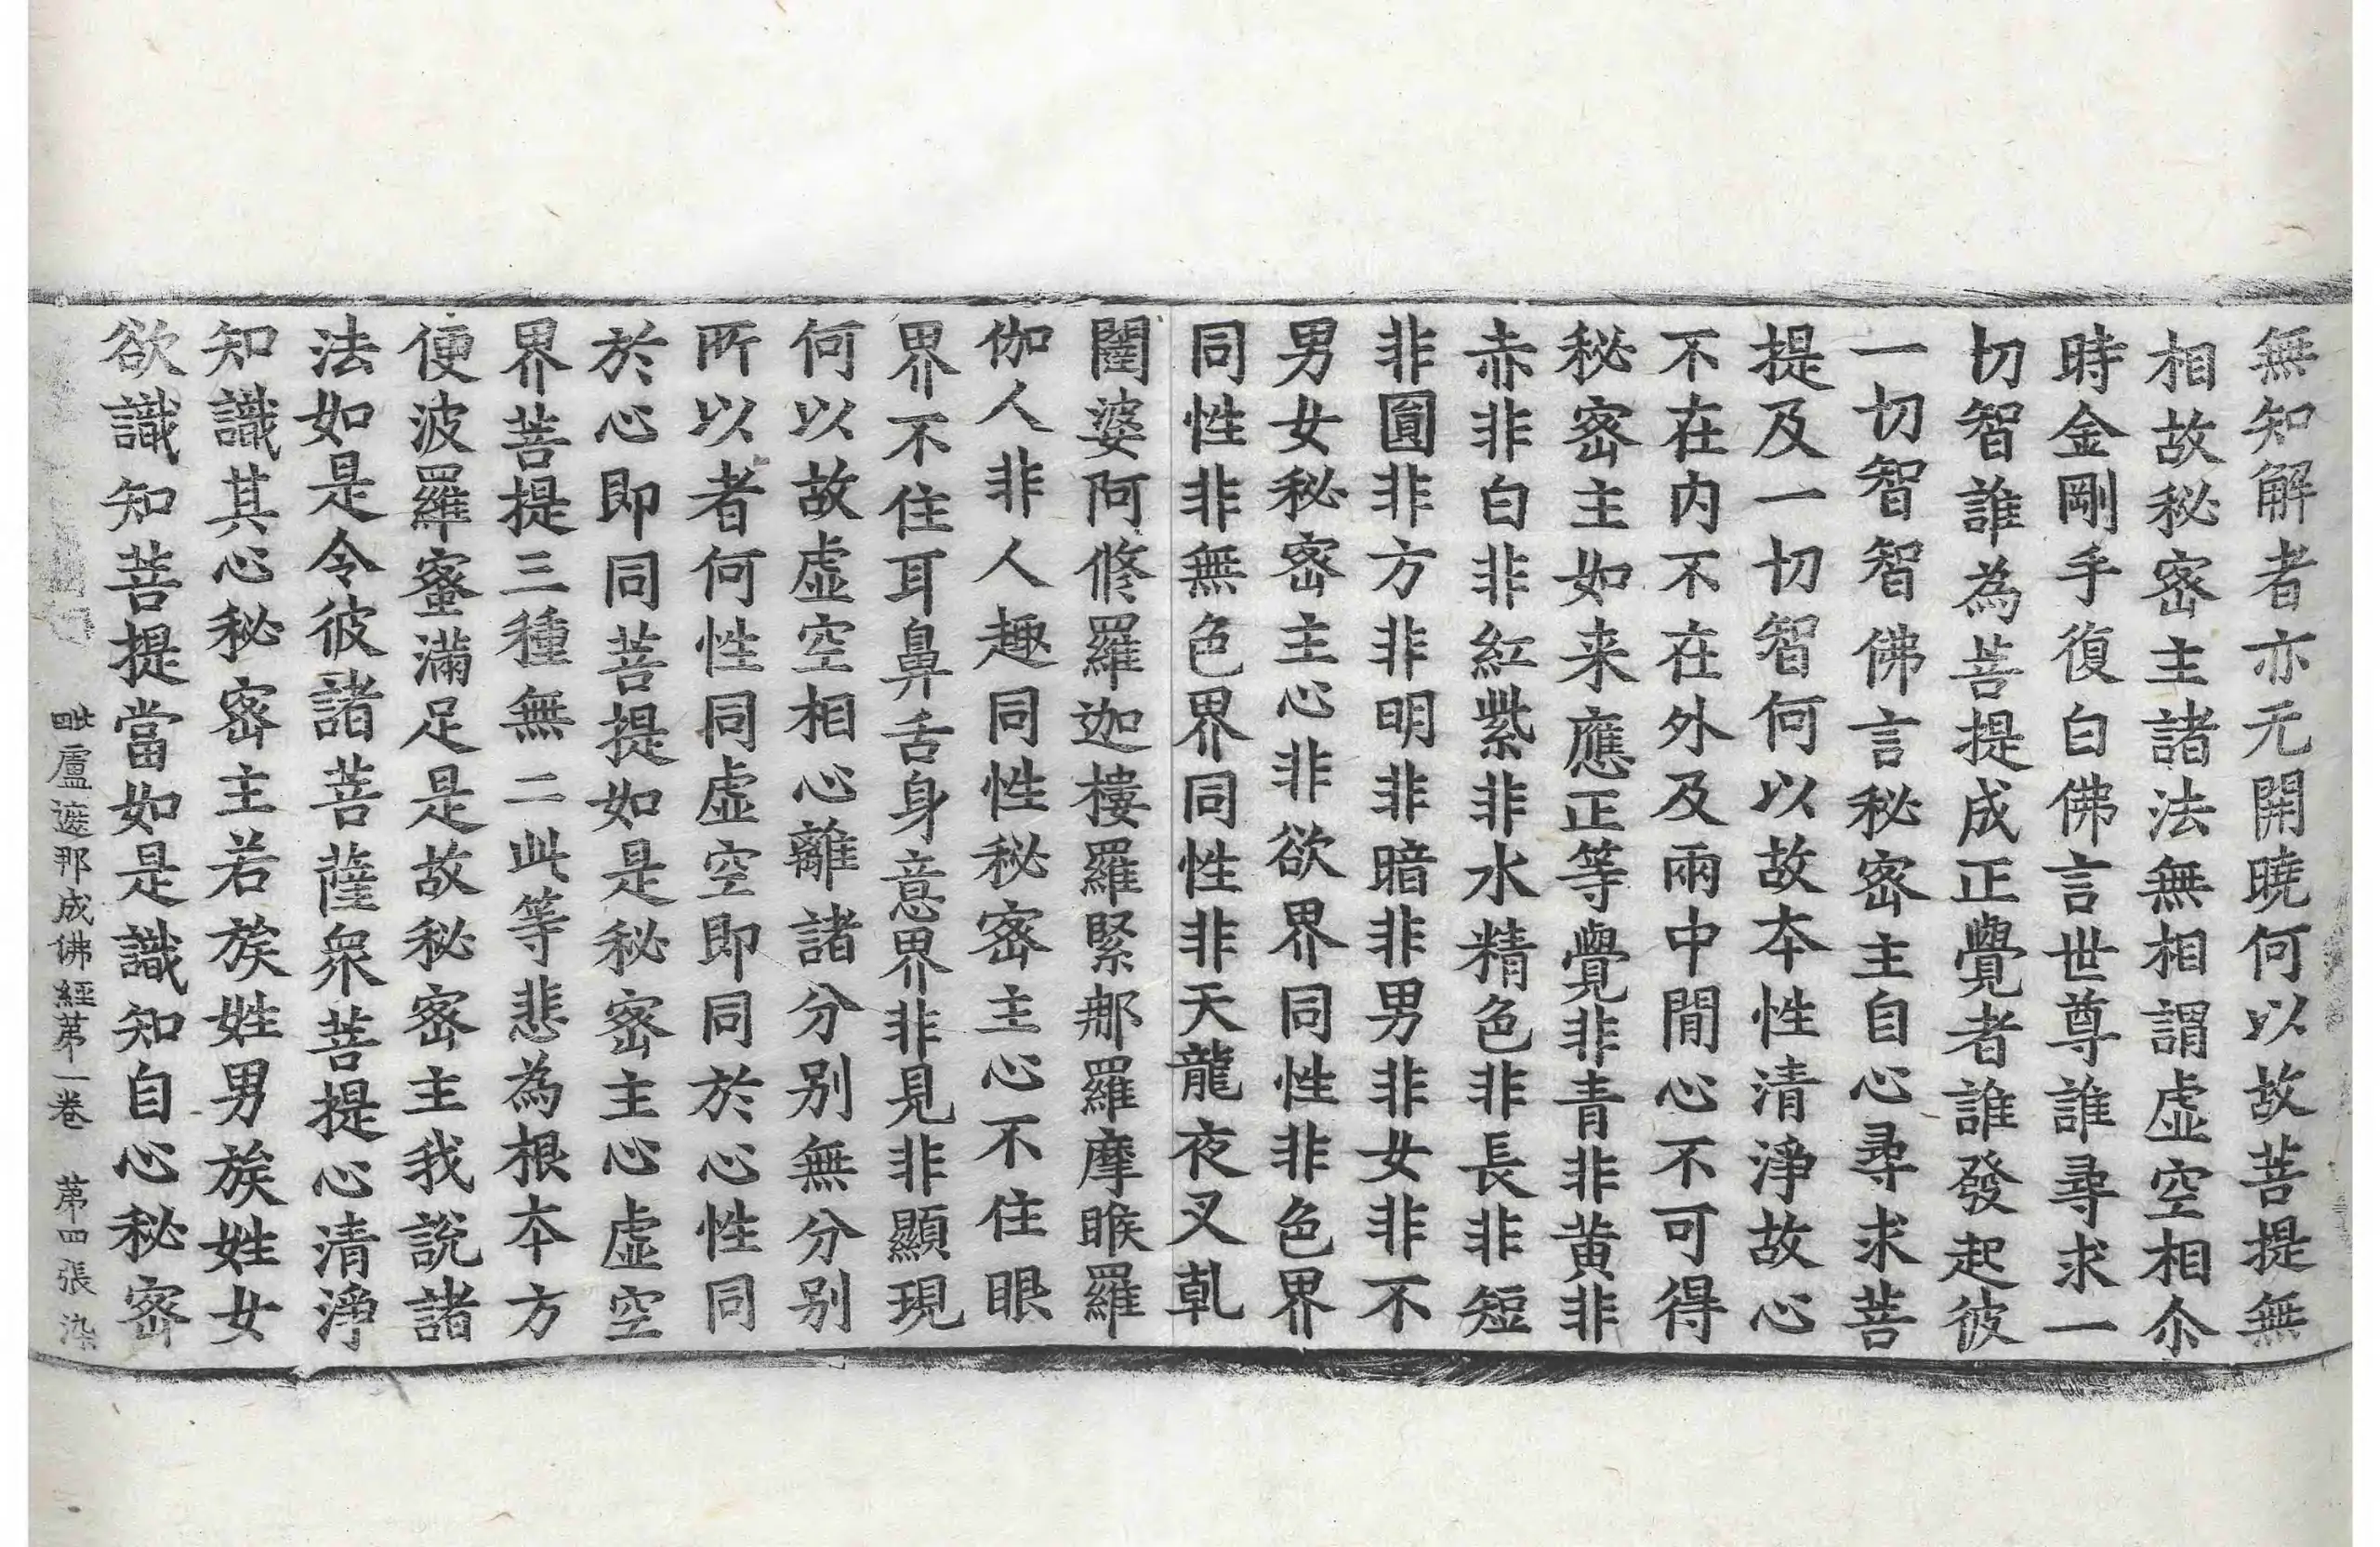 無知解者亦无開曉何以故菩提無
相故秘密主諸法無相謂虚空相尒
時金剛手復白佛言世尊誰尋求一
切智誰為菩提成正覺者誰發起彼
一切智智佛言秘密主自心尋求菩
提及一切智何以故本性清淨故心
不在内不在外及兩中閒心不可得
秘密主如来應正等覺非青非黃非
赤非白非紅紫非水精色非長非短
非圓非方非明非暗非男非女非不
男女秘密主心非欲界同性非色界
同性非無色界同性非天龍夜叉乹
闥婆阿修羅迦樓羅緊那羅摩睺羅
伽人非人趣同性秘密主心不住眼
界不住耳鼻舌身意界非見非顯現
何以故虚空相心離諸分别無分别
所以者何性同虚空即同於心性同
於心即同菩提如是秘密主心虚空
界菩提三種無二此等悲為根本方
便波羅蜜滿足是故秘密主我說諸
法如是令彼諸菩薩衆菩提心清淨
知識其心秘密主若族姓男族姓女
欲識知菩提當如是識知自心秘密
毗盧遮那成佛經苐一卷　苐四張　染